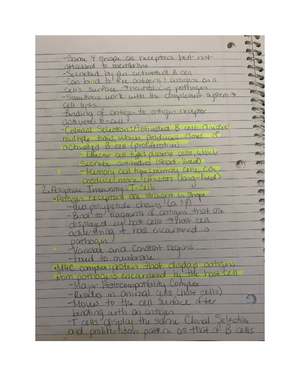 - Same Y shape as receptors but not
attached to membrane
- Secreted by an activated B cell
- Can bind to free antigens / antigens on a
cell's surface, neutralizing pathogens
- Sometimes work with the complement system &
cell lysis
- Binding of antigen to antigen receptor
activates B-cell
- Clonal Selection: Activated B cell divides
multiple times, which produces clones of
activated B cell (proliferation)
- Effector cells: plasma cells, which
secrete antibodies (short lived)
- Memory cells: can
produce more effectors (long lived)
2. Adaptive Immunity: T-cells
• Antigen receptors are different in shape
- Two polypeptide chains (α & β)
- Bind to fragments of antigens that are
displayed on host cells
indicating it has encountered a
pathogen
- Variable and constant regions
- Fixed to membrane
• MHC complex: protein that displays antigens
from pathogens encountered in the host cell
- Major Histocompatibility Complex
- Resides in animal cells (host cells)
- Moves to the cell surface after
binding with an antigen
- T cells display the same Clonal Selection
and proliferation pattern as that of B cells